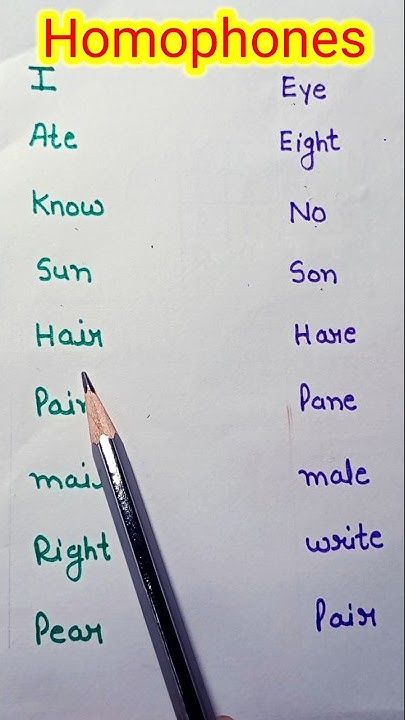 Homophones
I Eye
Ate Eight
Know No
Sun Son
Hair Hare
Pane
male
Right write
Pear Pair